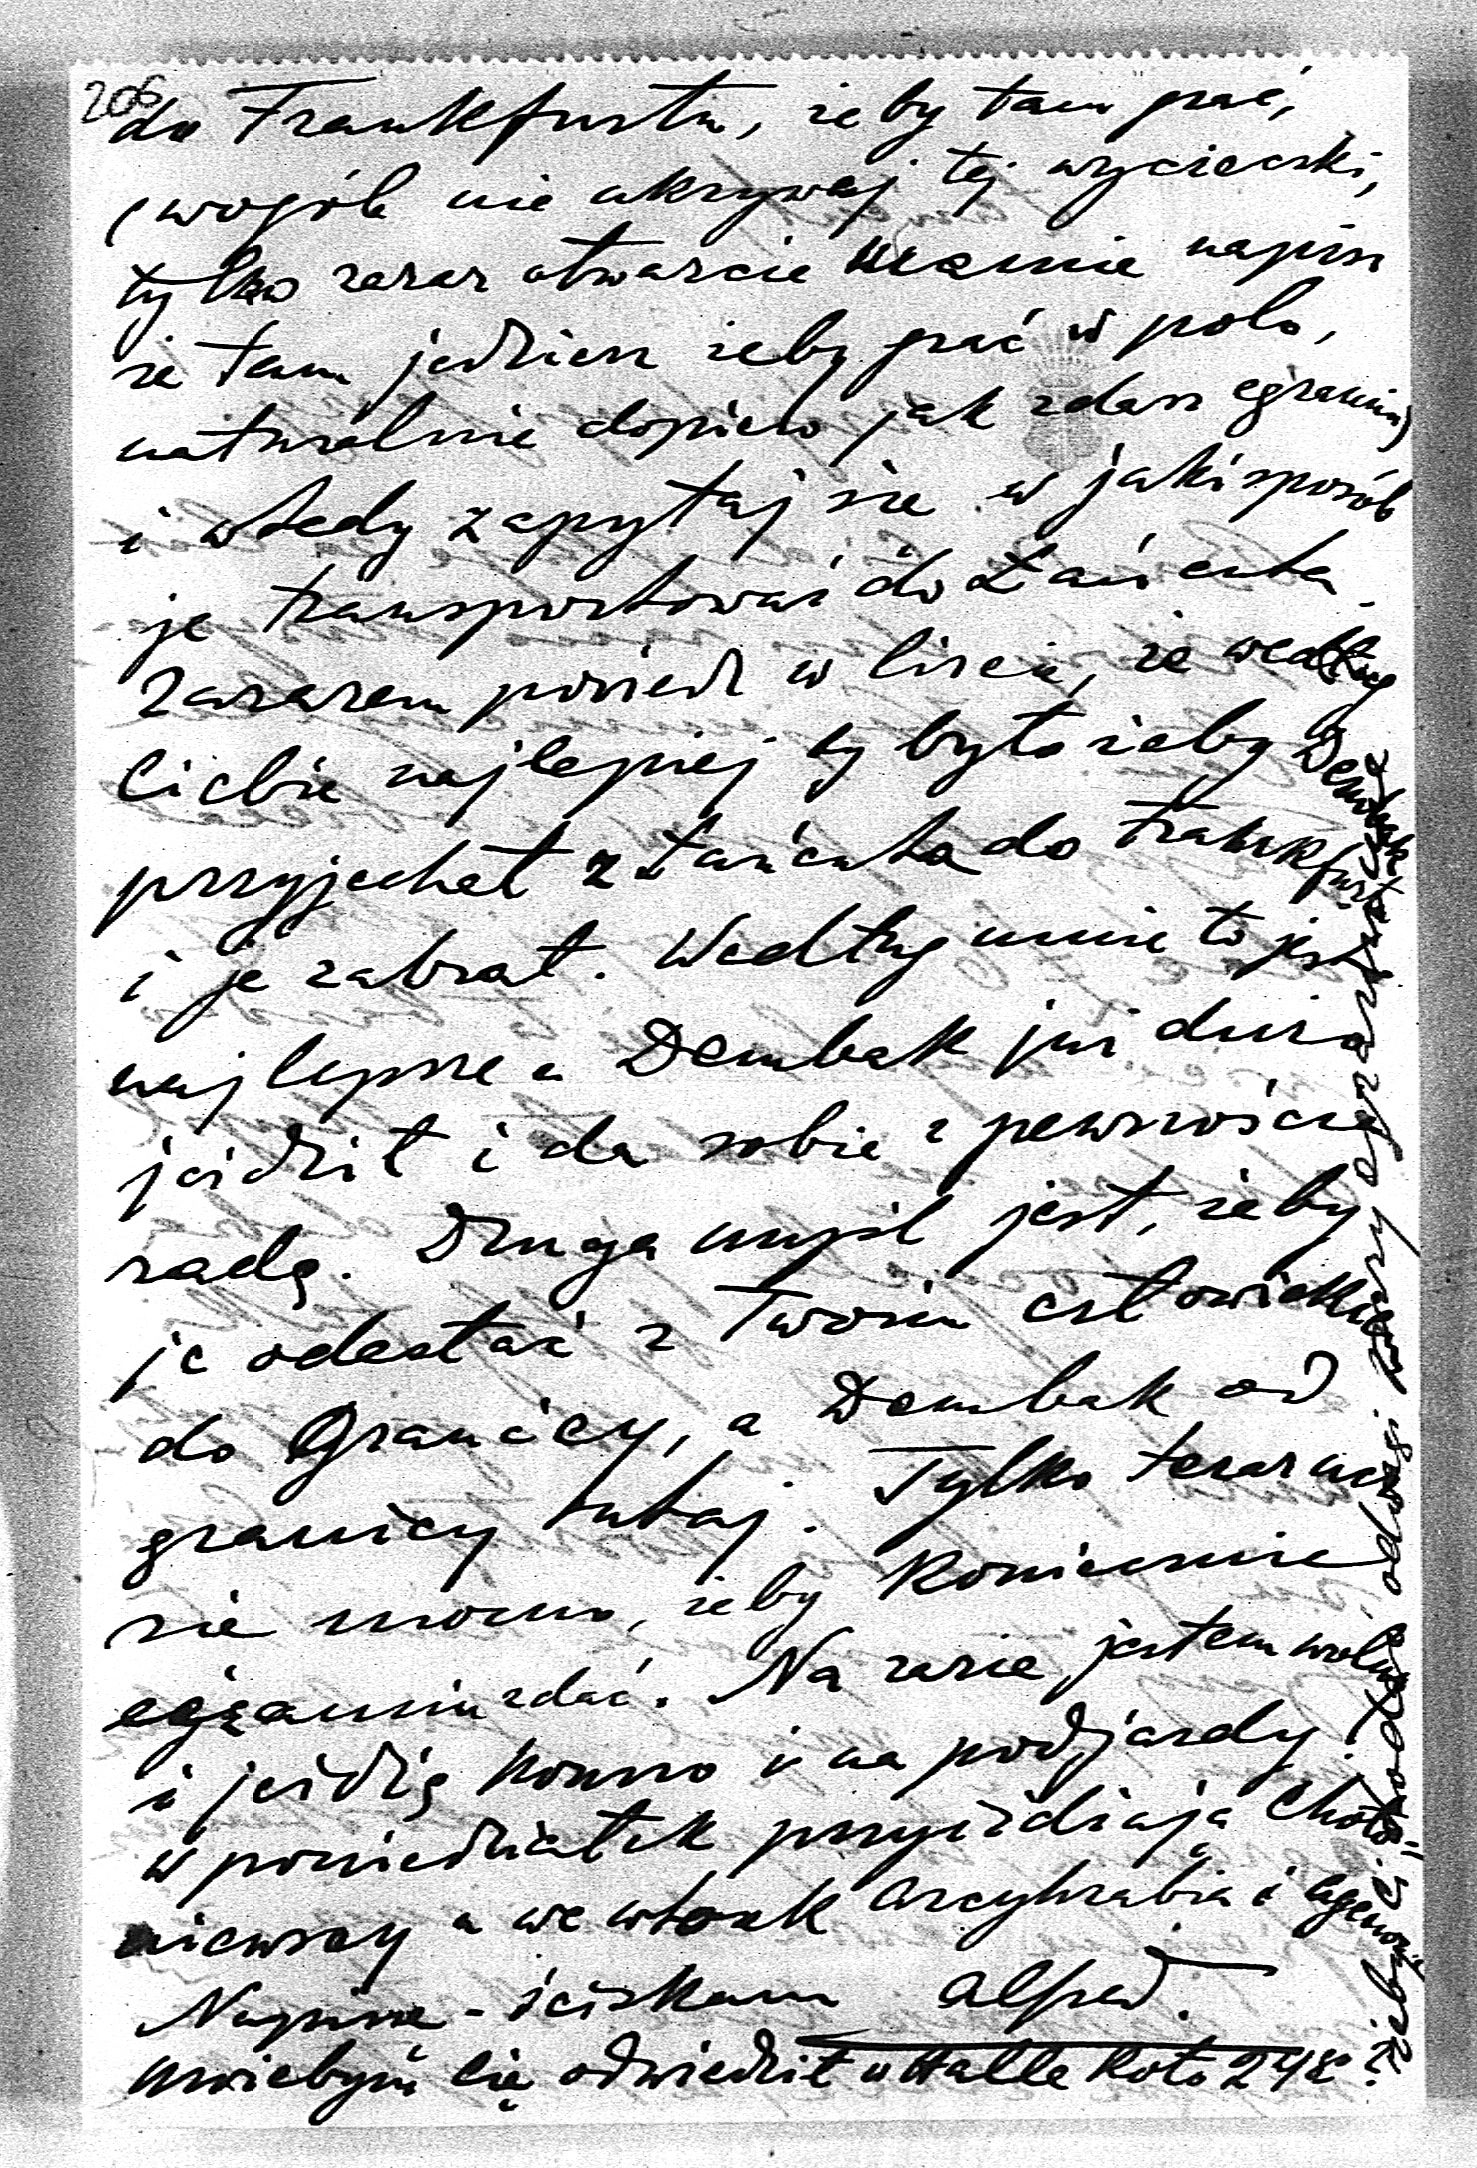 206
do Frankfurtu, żeby tam grać,
(wogóle nie ukrywaj tej wycieczki,
tylko zaraz otwarcie Mamie napisz
że tam jedziesz żeby grać w polo,
naturalnie dopiero jak zdasz egzamin)
i wtedy zapytaj się w jaki sposób
je transportować do Łańcuta.
Zarazem powiedz w liście, że według
Ciebie najlepiej by było żeby Dembak
przyjechał z Łańcuta do Frankfurtu
i je zabrał. Według mnie to jest
najlepsze a Dembak już dużo
jeździł i da sobie z pewnością
radę. Druga myśl jest, żeby
je odesłać z Twoim człowiekiem
do Granicy, a Dembak od
granicy tutaj. Tylko teraz ucz
się mocno, żeby koniecznie
egzamin zdać. Na razie jestem wolny
i jeżdżę konno i na podjazdy.
w poniedziałek przyjeżdżają Choło-
niewscy a we wtorek arcyhrabia i
Napisz - ściskam Alfred.
Możebyś Cię odwiedził u Halle koło 24go?
żeby Ci